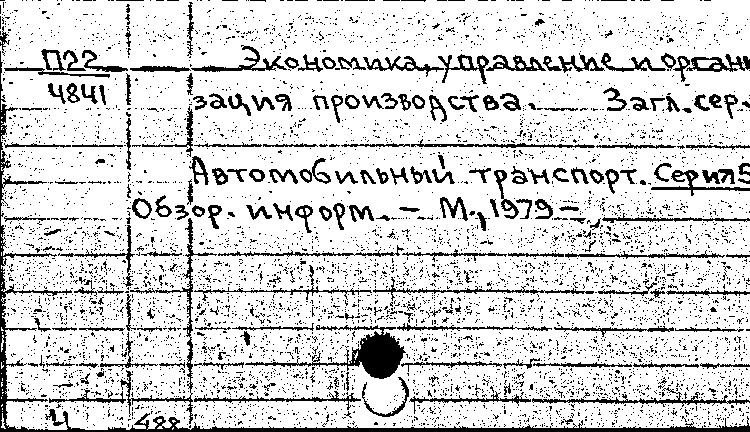 П22
4841
Экономика, управление и органи
зация производства. Загл. сер.
Автомобильный транспорт. Серия 5
Обзор. информ. – М., 1979 –
Ч 488